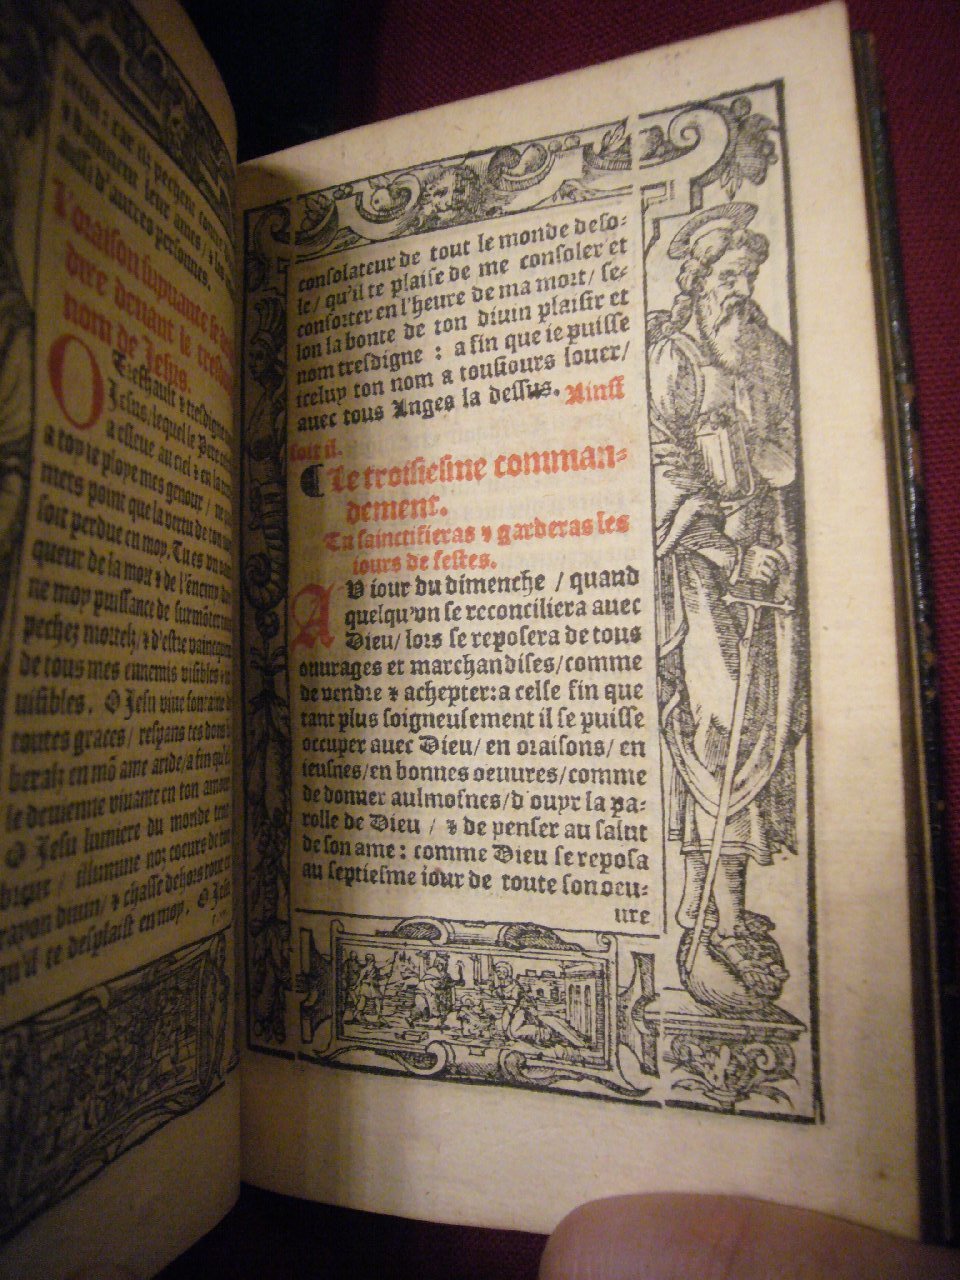 d'autres personnes.
L'oraison suyuante se
dire deuant le tres
nom de Jesus.
O Treshault & tresdigne
Jesus, lequel le Pere
a esleue au ciel & en la
a toy ie ploye mes genoux / ne
mets point que la vertu de ton
soit perdue en moy. Tu es vn
queur de la mort & de l'enemy
ne moy puissance de surmõter
pechez mortelz, & d'estre
de tous mes ennemis visibles
uisibles. O Jesu viue fontaine
toutes graces / respans tes dons
beralz en mõ ame aride / a fin qu'el
le deuienne viuante en ton amour
O Jesu lumiere du monde
illumine noz coeurs de
rayon diuin / & chasse dehors tout
qu'il te desplaist en moy. O Jesu
consolateur de tout le monde deso-
le / qu'il te plaise de me consoler et
conforter en l'heure de ma mort / se-
lon la bonte de ton diuin plaisir et
nom tresdigne : a fin que ie puisse
iceluy ton nom a tousiours louer /
auec tous Anges la dessus. Ainsi
soit il.
¶ Le troisiesme comman-
dement.
Tu sainctifieras & garderas les
iours de festes.
AV iour du dimenche / quand
quelqu'vn se reconciliera auec
Dieu / lors se reposera de tous
ouurages et marchandises / comme
de vendre & achepter: a celle fin que
tant plus soigneusement il se puisse
occuper auec Dieu / en oraisons / en
ieusnes / en bonnes oeuures / comme
de donner aulmosnes / d'ouyr la pa-
rolle de Dieu / & de penser au salut
de son ame : comme Dieu se reposa
au septiesme iour de toute son oeu-
ure